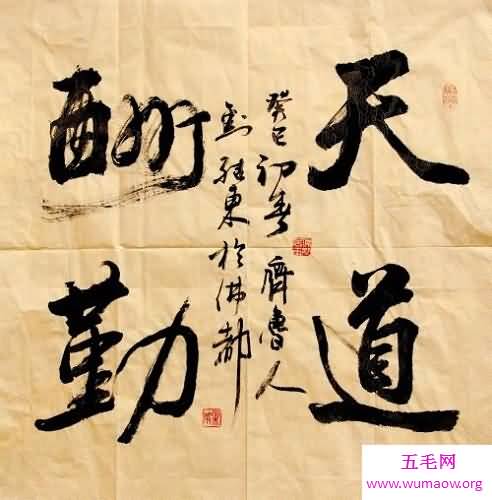 天道
癸巳初春 齊魯人
劉東於佛都
酬勤
五毛网
www.wumaow.org